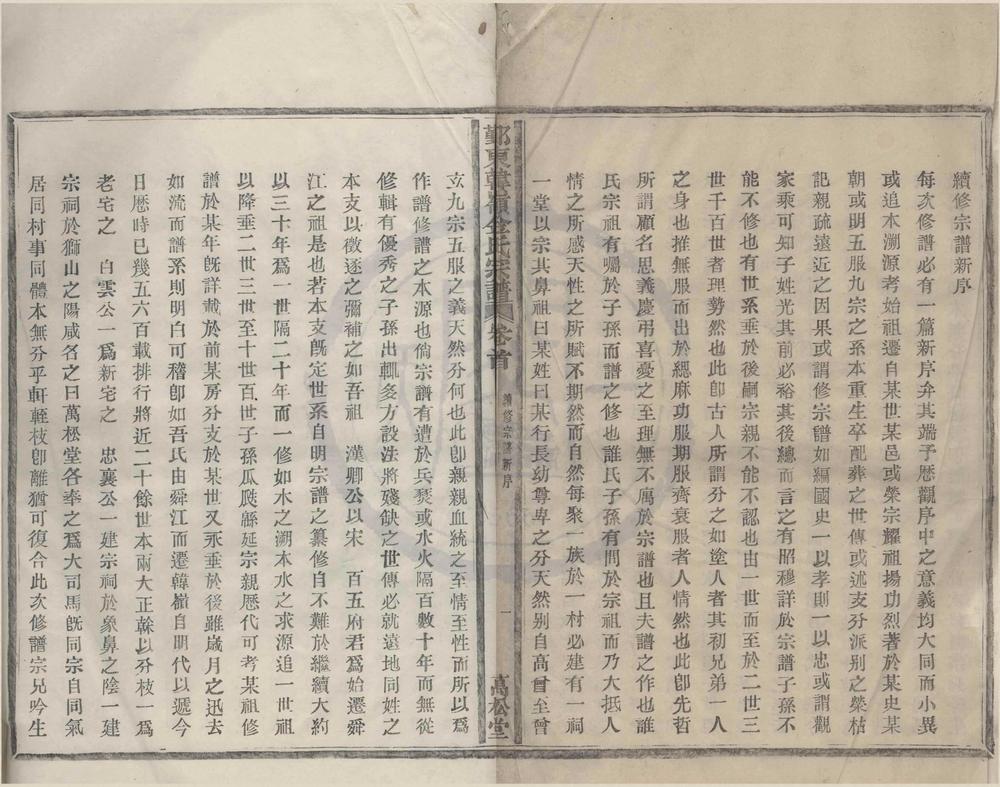 續修宗譜新序
每次修譜必有一篇新序弁其端予歷觀序中之意義均大同而小異
或追本溯源者始祖遷自某世某邑或榮宗耀祖揚功烈著於某史某
朝或明五服九宗之系本重生卒配葬之世傳或述支分派别之榮枯
記親疏遠近之因果或謂修宗譜如編國史一以孝則一以忠或謂觀
家乘可知子姓光其前必裕其後總而言之有昭穆詳於宗譜子孫不
能不修也有世系垂於後嗣宗親不能不認也由一世而至於二世三
世千百世者理勢然也此卽古人所謂分之如塗人者其初兄弟一人
之身也推無服而出於緦麻功服期服齊衰服者人情然也此卽先哲
所謂顧名思義慶弔喜憂之至理無不厲於宗譜也且夫譜之作也誰
氏宗祖有囑於子孫而譜之修也誰氏子孫有問於宗祖而乃大抵人
情之所感天性之所賦不期然而自然每聚一族於一村必建有一祠
一堂以宗其鼻祖曰某姓曰某行長幼尊卑之分天然别自高曾至曾
鄞東韓嶺金氏宗譜 卷首 續修宗譜新序 一 萬松堂
玄九宗五服之義天然分何也此卽親親血統之至情至性而所以爲
作譜修譜之本源也倘宗譜有遭於兵燹或水火隔百數十年而無從
修輯有優秀之子孫出輒多方設法將殘缺之世傳必就遠地同姓之
本支以徵逐之彌補之如吾祖 漢卿公以宋 百五府君爲始遷舜
江之祖是也若本支旣定世系自明宗譜之纂修自不難於繼續大約
以三十年爲一世隔二十年而一修如水之溯本水之求源追一世祖
以降垂二世三世至十世百世子孫瓜瓞緜延宗親歷代可考某祖修
譜於某年旣詳載於前某房分支於某世又永垂於後雖歲月之迅去
如流而譜系則明白可稽卽如吾氏由舜江而遷韓嶺自明代以遞今
日歷時已幾五六百載排行將近二十餘世本兩大正榦以分枝一爲
老宅之 白雲公一爲新宅之 忠襄公一建宗祠於象鼻之陰一建
宗祠於獅山之陽咸名之曰萬松堂各奉之爲大司馬旣同宗自同氣
居同村事同體本無分乎軒輊枝卽離猶可復合此次修譜宗兄吟生